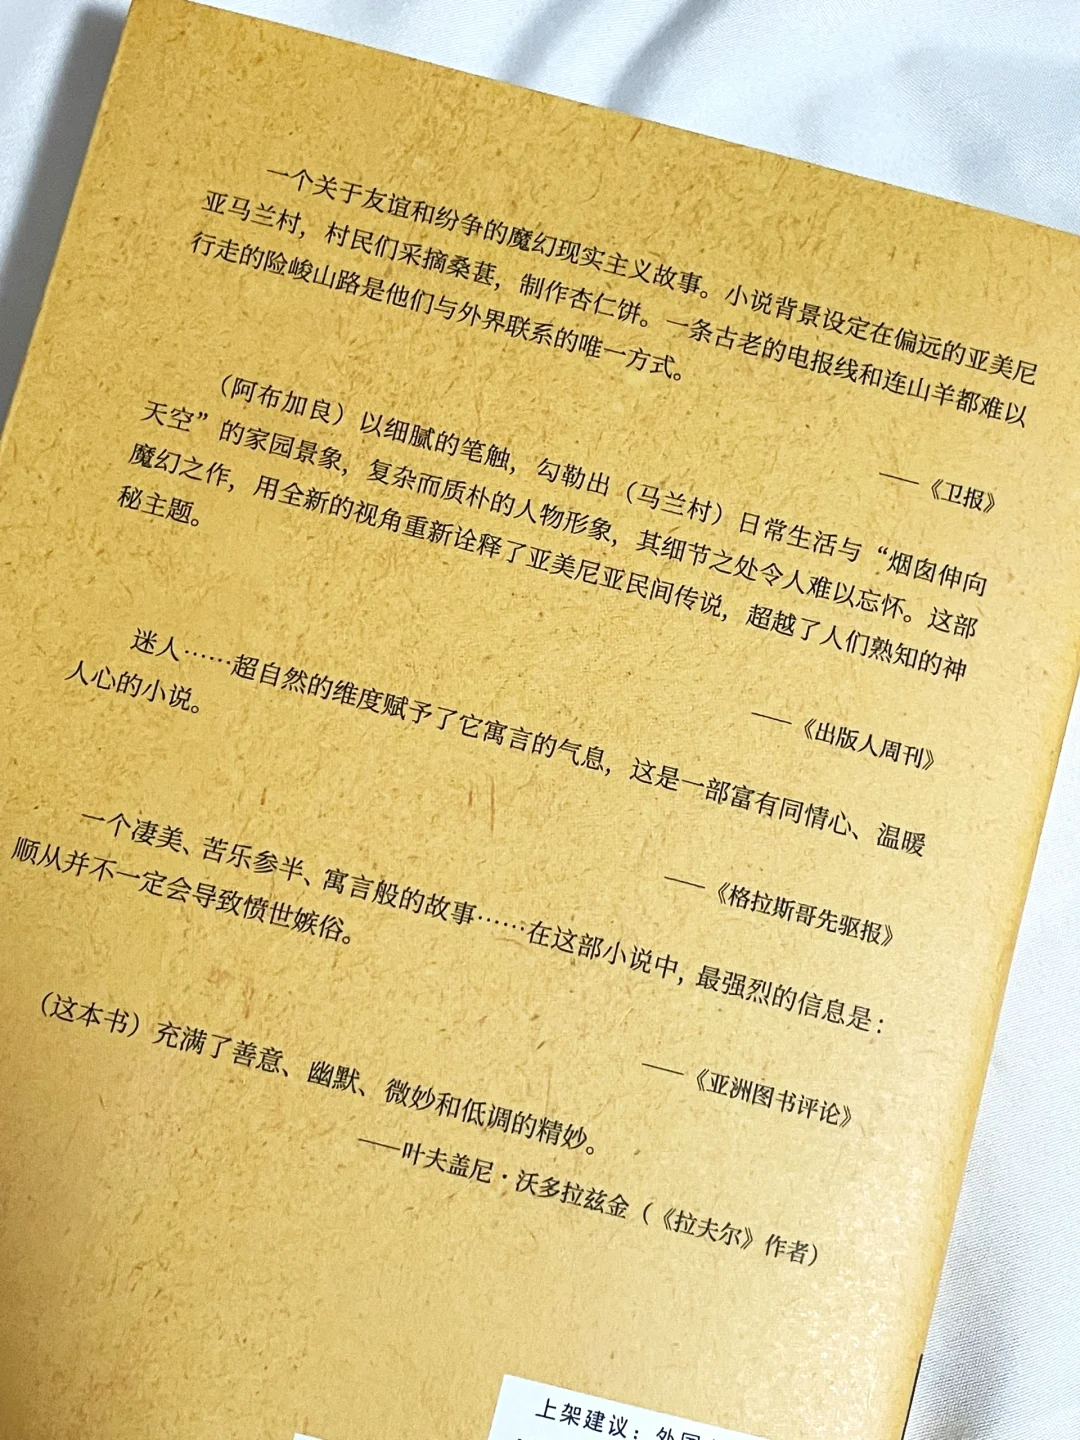 一个关于友谊和纷争的魔幻现实主义故事。小说背景设定在偏远的亚美尼
亚马兰村，村民们采摘桑葚，制作杏仁饼。一条古老的电报线和连山羊都难以
行走的险峻山路是他们与外界联系的唯一方式。
——《卫报》
（阿布加良）以细腻的笔触，勾勒出（马兰村）日常生活与“烟囱伸向
天空”的家园景象，复杂而质朴的人物形象，其细节之处令人难以忘怀。这部
魔幻之作，用全新的视角重新诠释了亚美尼亚民间传说，超越了人们熟知的神
秘主题。
——《出版人周刊》
迷人……超自然的维度赋予了它寓言的气息，这是一部富有同情心、温暖
人心的小说。
——《格拉斯哥先驱报》
一个凄美、苦乐参半、寓言般的故事……在这部小说中，最强烈的信息是：
顺从并不一定会导致愤世嫉俗。
——《亚洲图书评论》
（这本书）充满了善意、幽默、微妙和低调的精妙。
——叶夫盖尼·沃多拉兹金（《拉夫尔》作者）
上架建议：外国